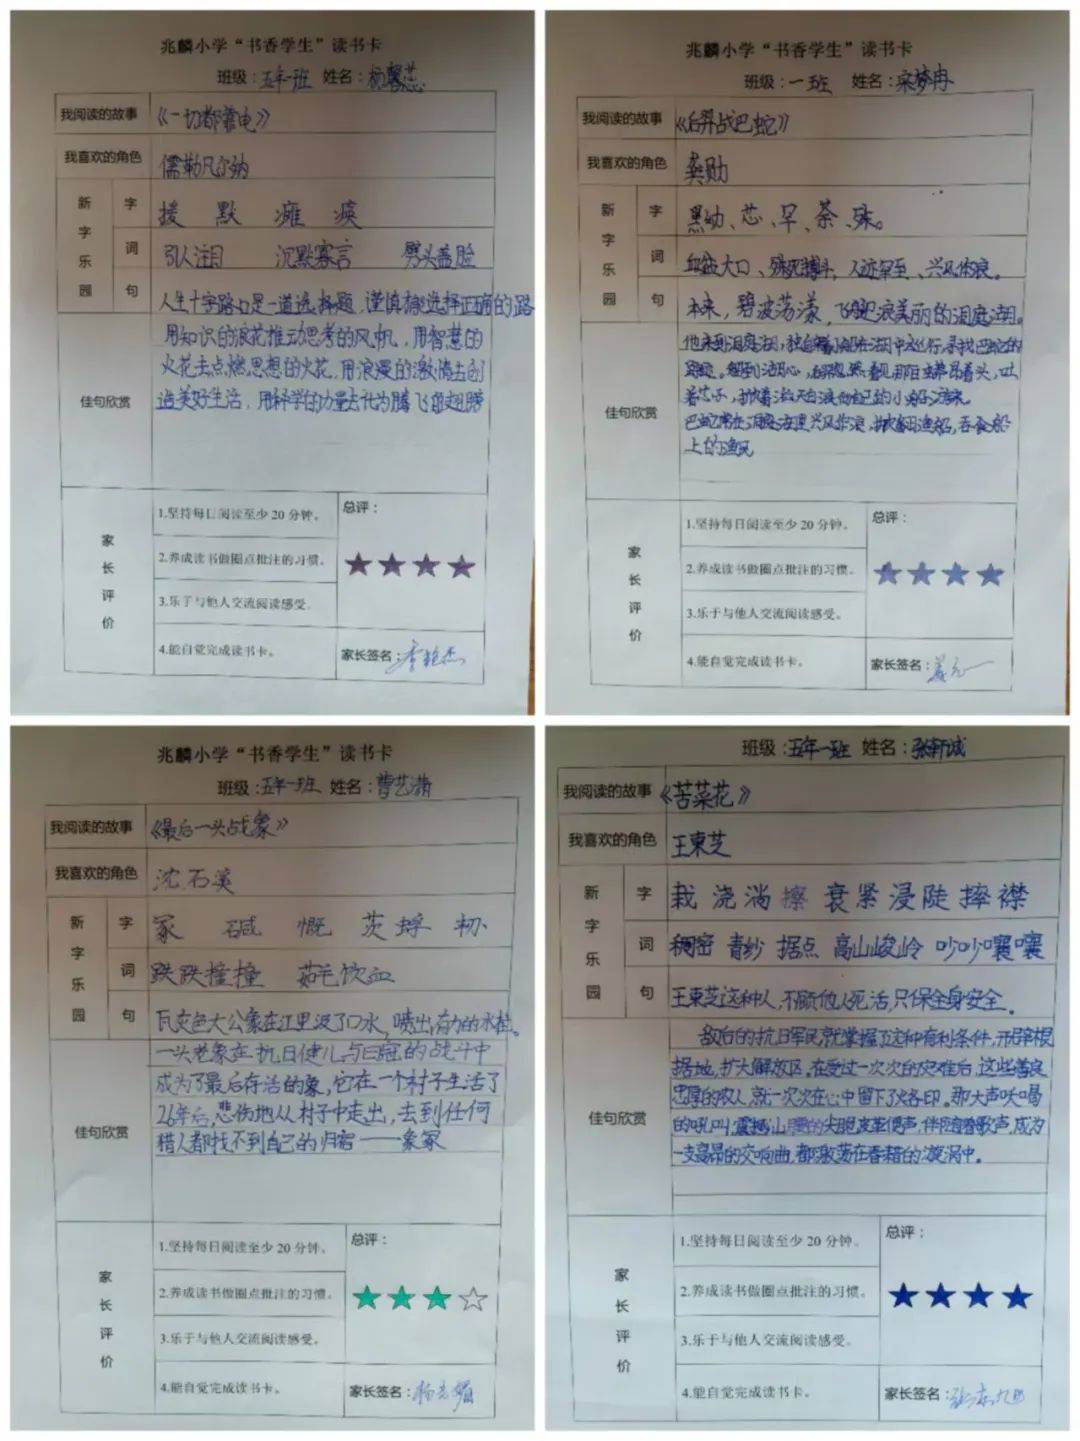 兆麟小学“书香学生”读书卡
班级：五年一班 姓名：杨馨蕊
我阅读的故事 《一切都靠电》
我喜欢的角色 儒勒凡尔纳
新字乐园
字 援 默 瘫 痪
词 引人注目 沉默寡言 劈头盖脸
句 人生十字路口是一道选择题，谨慎选择正确的路
佳句欣赏
用知识的浪花推动思考的风帆，用智慧的
火花去点燃思想的火花，用浪漫的激情去创
造美好生活，用科学的力量去化为腾飞的翅膀
家长评价
1.坚持每日阅读至少20分钟。
2.养成读书做圈点批注的习惯。
3.乐于与他人交流阅读感受。
4.能自觉完成读书卡。
总评：
★★★★
家长签名：
兆麟小学“书香学生”读书卡
班级：一班 姓名：宋梦冉
我阅读的故事 《后羿战巴蛇》
我喜欢的角色 龚勋
新字乐园
字 黝、芯、罕、荼、殊。
词 血盆大口、殊死搏斗、人迹罕至、兴风作浪。
句 本来，碧波荡漾，飞鸥迎浪美丽的洞庭湖。
佳句欣赏
他来到洞庭湖，独自在湖中巡行，寻找巴蛇的
踪迹。
着芯子，掀着滔天白浪向自己的小船游来。
巴蛇常在洞庭湖里兴风作浪，掀翻渔船，吞食船
上的渔民
家长评价
1.坚持每日阅读至少20分钟。
2.养成读书做圈点批注的习惯。
3.乐于与他人交流阅读感受。
4.能自觉完成读书卡。
总评：
★★★★
家长签名：
兆麟小学“书香学生”读书卡
班级：五年一班 姓名：曹艺潇
我阅读的故事 《最后一头战象》
我喜欢的角色 沈石溪
新字乐园
字 冢 碱 慨 茨 蜉
词 跌跌撞撞 茹毛饮血
句 瓦灰色大公象在江里汲了口水，喷出有力的水柱。
佳句欣赏
一头老象在抗日健儿与日寇的战斗中
成为了最后存活的象，它在一个村子生活了
26年后，悲伤地从村子中走出，去到任何
猎人都找不到自己的归宿——象冢
家长评价
1.坚持每日阅读至少20分钟。
2.养成读书做圈点批注的习惯。
3.乐于与他人交流阅读感受。
4.能自觉完成读书卡。
总评：
★★★☆
家长签名：
班级：五年一班 姓名：张新诚
我阅读的故事 《苦菜花》
我喜欢的角色 王柬芝
新字乐园
字 栽 浇 淌 擦 衰 紧 浸 陡 摔 襟
词 稠密 青纱 据点 高山峻岭 吵吵嚷嚷
句 王柬芝这种人，不顾他人死活，只保全身安全。
佳句欣赏
敌后的抗日军民就掌握了这种有利条件，开辟根
据地，扩大解放区。在受过一次次的灾难后，这些善良
忠厚的农人，就一次次在心中留下了烙印。那大声吆喝
的吼叫，震撼山的尖脆皮革便声，伴随着歌声，成为
一支高昂的交响曲，都激荡在春耕的漩涡中。
家长评价
1.坚持每日阅读至少20分钟。
2.养成读书做圈点批注的习惯。
3.乐于与他人交流阅读感受。
4.能自觉完成读书卡。
总评：
★★★★
家长签名：